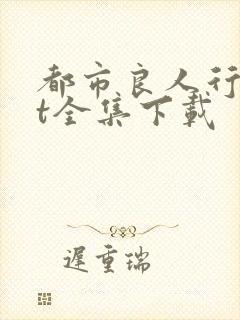 都市良人行
t全集下载
遲重瑞